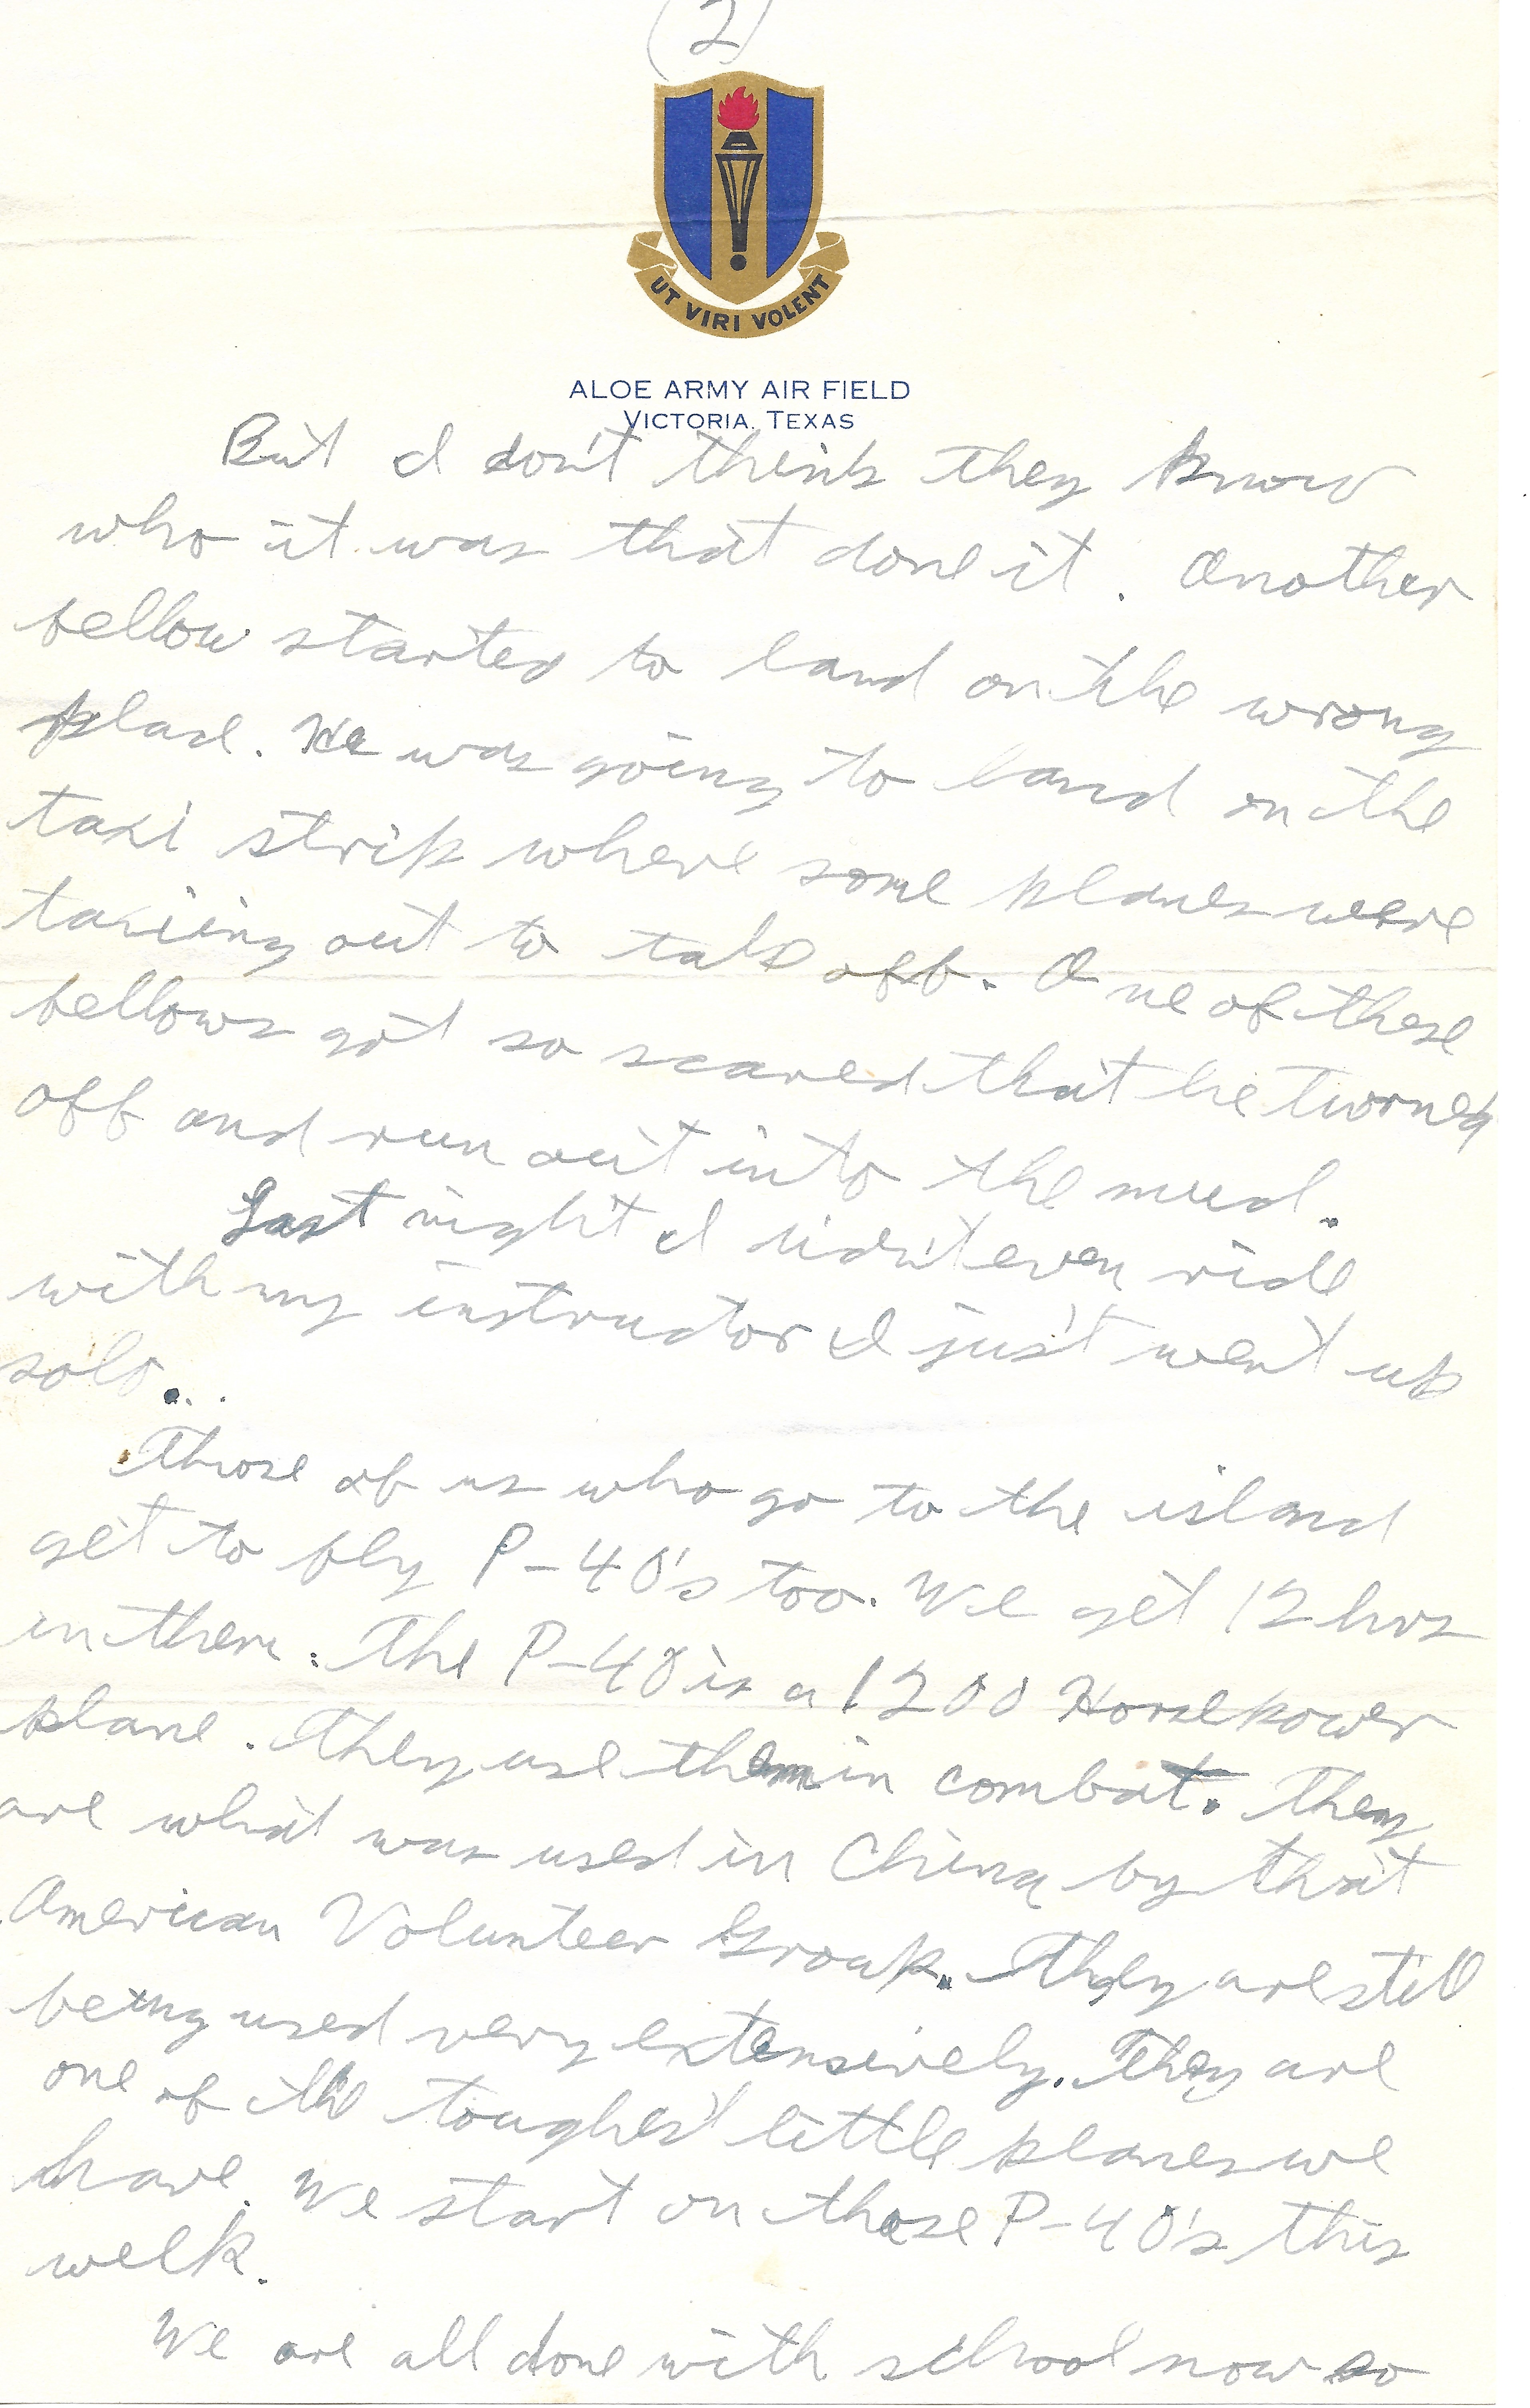 (2)
UT VIRI VOLENT
ALOE ARMY AIR FIELD
VICTORIA, TEXAS
But I don't think they know
who it was that done it. Another
fellow started to land on the wrong
place. He was going to land on the
taxi strip where some planes were
taxiing out to take off. One of these
fellows got so scared that he turned
off and run out into the mud.
Last night I didn't even ride
with my instructor I just went up
solo...
Those of us who go to the island
get to fly P-40's too. We get 12 hrs
in them. The P-40 is a 1200 Horsepower
plane. They use them in combat. They
are what was used in China by that
American Volunteer Group. They are still
being used very extensively. They are
one of the toughest little planes we
have. We start on those P-40's this
week.
We are all done with school now so